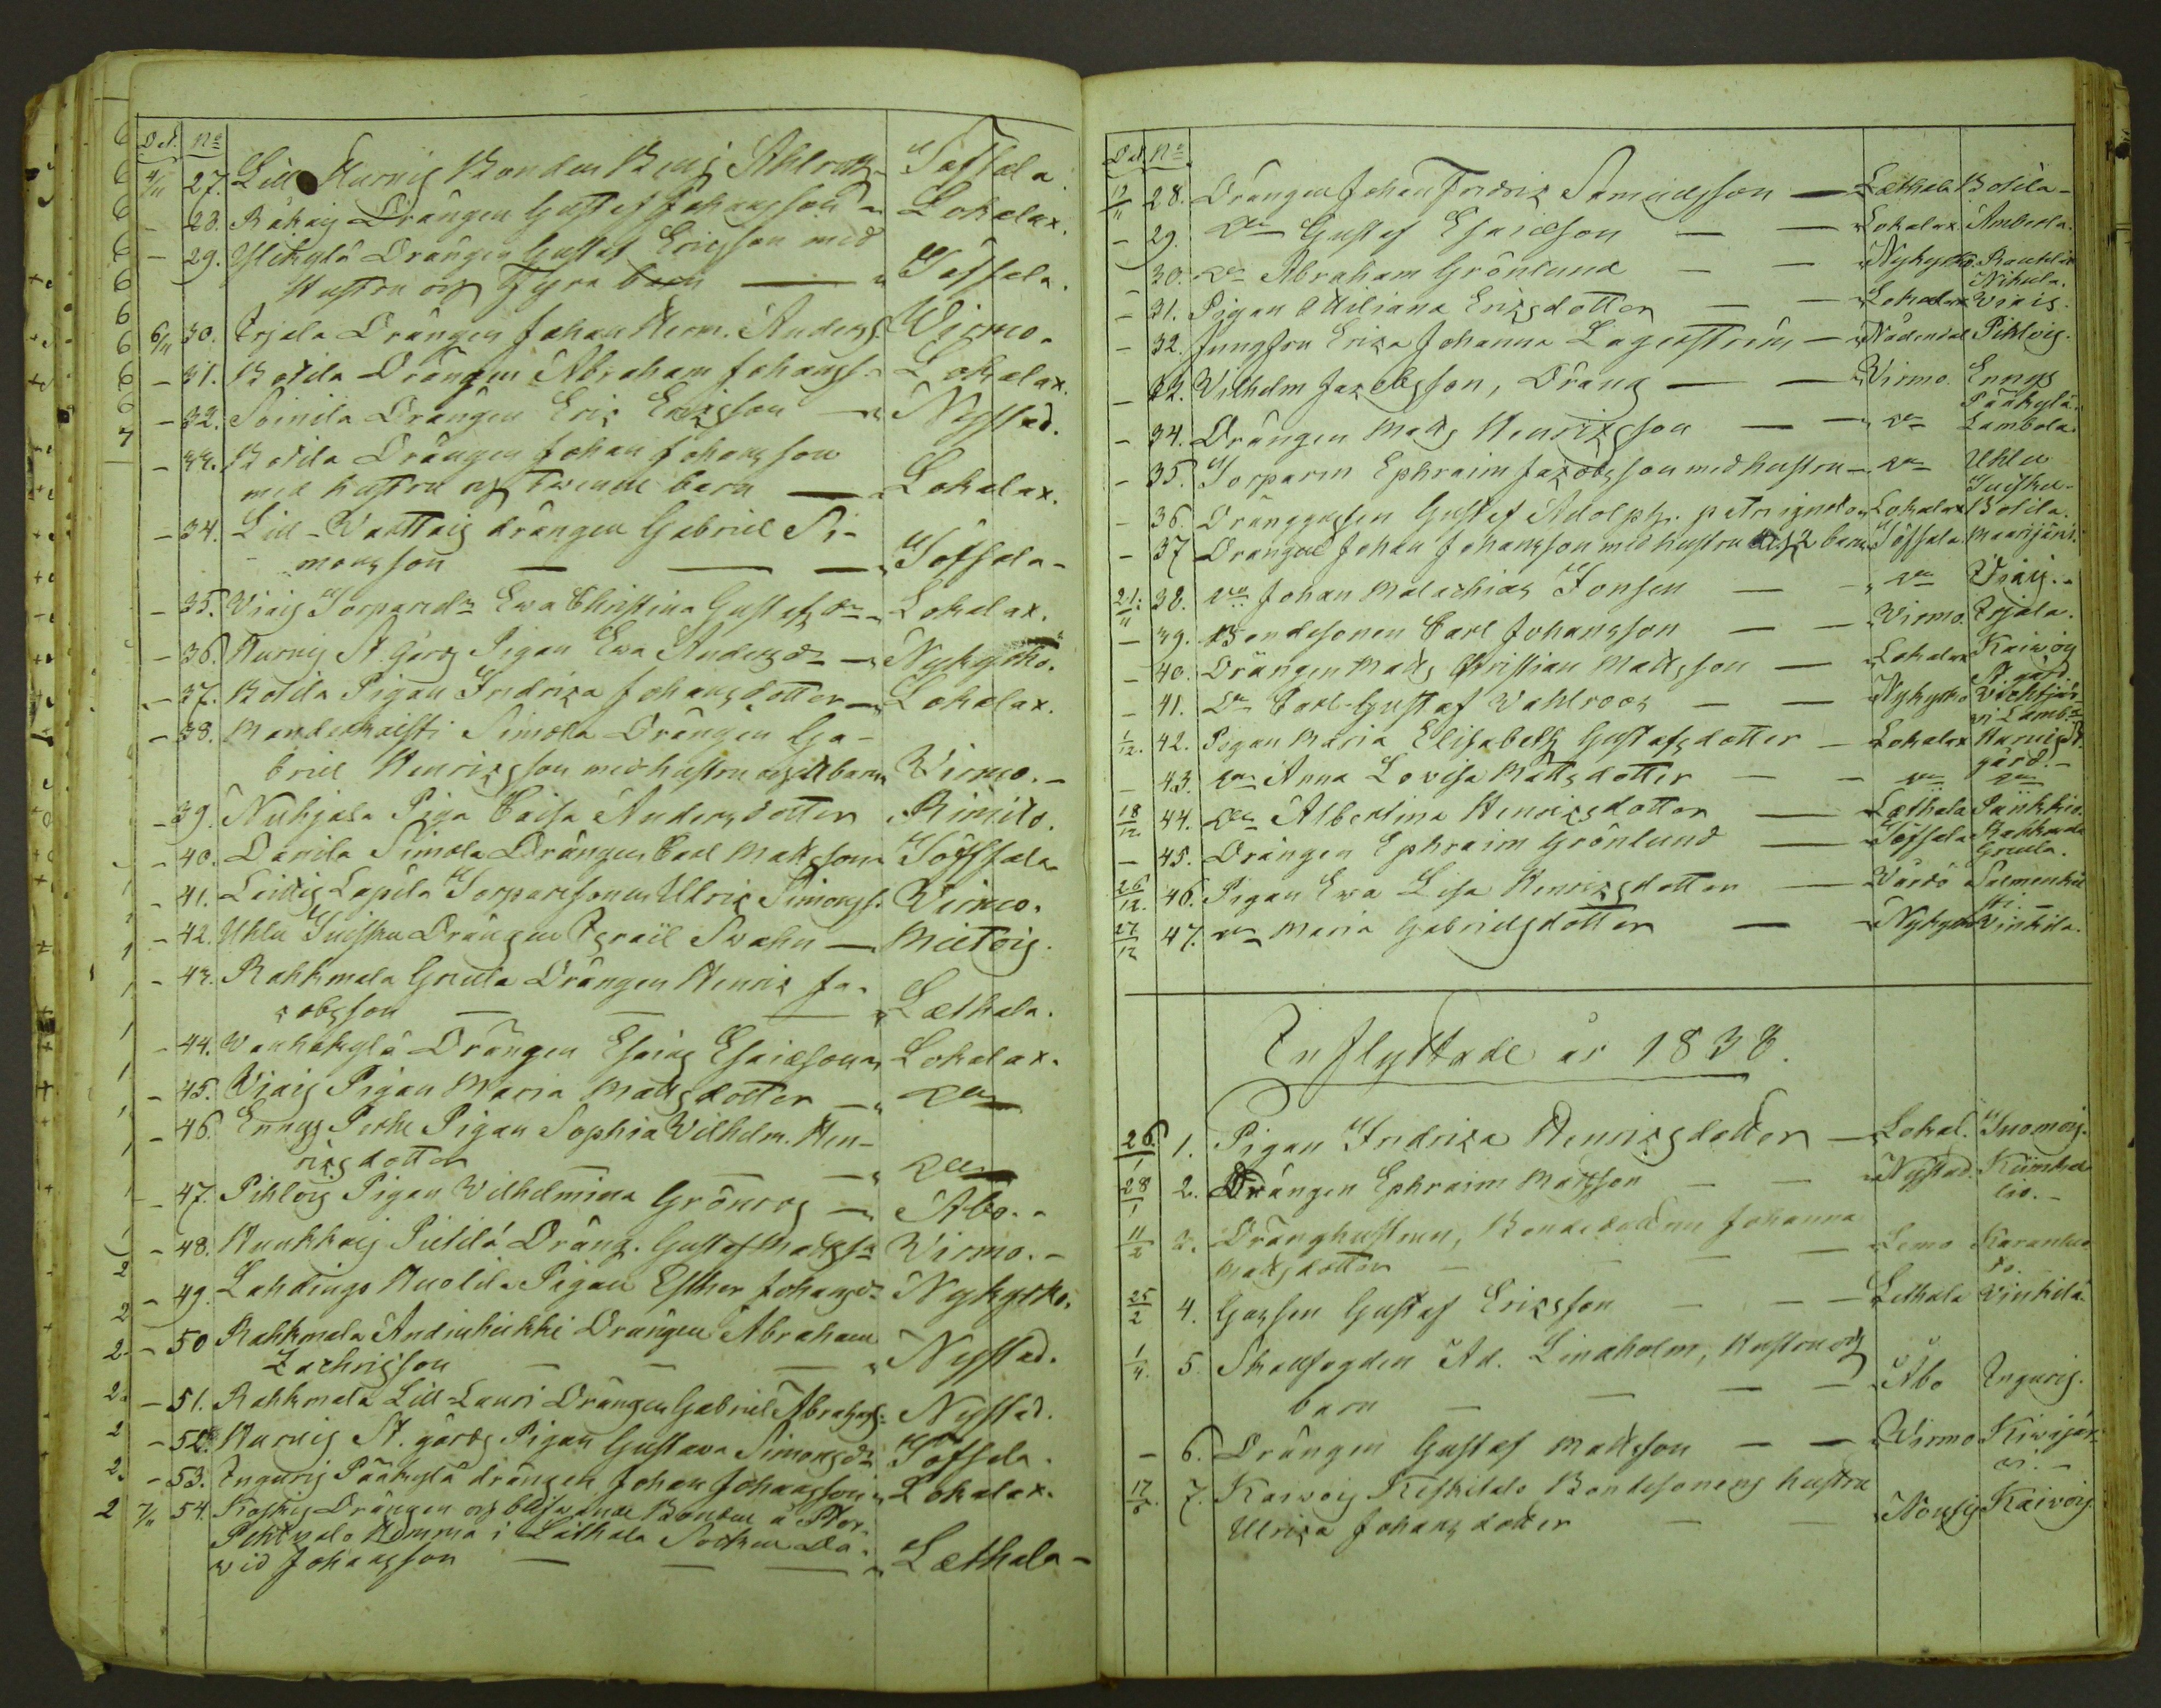 Dat. No
4/11 27. Lill Hurnig Bonden Benj. Ahlroth Töffsala.
- 28. Räkäig Drängen Gustaf Johansson Lokalax.
- 29. Ylikylä Drängen Gustaf Ericsson med
Hustru och Fyra barn — Töffsala.
6/11 30. Irjala Drängen Johan Herm. Anderss. Wirmo.
- 31. Botila Drängen Abraham Johanss. Lokalax.
- 32. Soinila Drängen Eric Ericsson — Nystad.
- 33. Botila Drängen Johan Johansson
med hustru och Twenne barn — Lokalax.
- 34. Lill-Waittaig drängen Gabriel Si-
monsson — — — Töffsala-
- 35. Viaig Torparedr Ewa Christina Gustafsdr Lokalax.
- 36. Hurnig St. gårds Pigan Ewa Andersdr — Nykyrko.
- 37. Botila Pigan Fredrica Johansdotter — Lokalax.
- 38. Manderkaisti Simola Drängen Ga-
briel Henricsson med hustru och barn Wirmo.-
- 39. Nuhjala Piga Caisa Andersdotter Rimito.
- 40. Danila Simola Drängen Carl Mattsson Töffsala
- 41. Leidig Lapila Torparesonen Ulric Simonss. Wirmo.
- 42. Uhlu Tuisku Drängen Israël Swahn — Mietois.
- 43. Rahkmala Greula Drängen Henric Ja-
cobsson — — — Lethala.
- 44. Wanhakylä Drängen Esaias Esaiesson Lokalax.
- 45. Viaig Pigan Maria Mattsdotter — do
- 46. Ennys Perhe Pigan Sophia Wilhelm. Hen-
ricsdotter — — do
- 47. Pihlois Pigan Wilhelmina Grönroos — Åbo.-
- 48. Hunkkaig Pietilä Dräng. Gustaf Mattss. Wirmo.-
- 49. Lahdings Huolila Pigan Esther Johansdr Nykyrko.
- 50 Rahkmala Andinheikki Drängen Abraham
Zachrisson — — — Nystad.
- 51. Rahkmala Lill-Lauri Drängen Gabriel Abrahss. Nystad.
- 52. Hurnig St. gårds Pigan Gustawa Simonsdr Töffsala.
- 53. Inguris Pääkylä drängen Johan Johansson Lokalax.
7/11 54. Koskis Drängen och blifwande Bonden å Stor-
Pihtvalo Hemma i Läthala Socken Da-
vid Johansson — — — Lethala-
Dat No
12/11 28. Drängen Johan Fredric Samuelsson — Lethala Botila-
- 29. do Gustaf Esaiesson — — Lokalax Ambrola.
- 30. do Abraham Grönlund — — Nykyrko. Rautila
Nikula.
- 31. Pigan Ottiliana Ericsdotter — — Lokalax Viais.
- 32. Jungfru Erica Johanna Lagerström — Nådendal Pihlois.
- 33. Wilhelm Jacobsson, Dräng — — Wirmo. Ennys
Pääkylä.
- 34. Drängen Matts Henricsson — — do Lambola
- 35. Torparen Ephraim Jacobsson med hustru — do Uhlu
Tuisku-
- 36. Dränggossen Gustaf Adolph. Lokalax Botila.
- 37 Drängen Johan Johansson med hustru och 2 barn Töffsala Maarijärvi.
21/11 38. do Johan Malachias Fonsen — do Viais.-
- 39. Bondesonen Carl Johansson — — Wirmo. Irjala.
- 40. Drängen Matts Christian Mattsson — Lokalax Kaivois
St. gård.
- 41. do Carl Gustaf Wahlroos — — Nykyrko Vichtjär
vi Lamb.
1/12. 42. Pigan Maria Elisabeth Gustafsdotter — Lokalax Hurnis St.
gård.-
- 43. do Anna Lovisa Mattsdotter — — do do
18/12 44. do Albertina Henricsdotter — Lethala Pankkio.
- 45. Drängen Ephraim Grönlund — Töffsala Rahkmala
Greula.
26/12. 46. Pigan Ewa Lisa Henricsdotter — Wårdö Salmenkai
sti.-
27/12 47. do Maria Gabrielsdotter — Nykyrko Vinkila.
Inflyttade år 1838.
26/1 1. Pigan Fredrica Henricsdotter — Lokal. Tuomois.
28/1 2. Drängen Ephraim Mattsson — — Nystad. Kiimka
lio.-
11/2 3. Dränghustrun, Bondedottren Johanna
Mattsdotter — — — Lemo Karanluo
to.
25/2 4. Gossen Gustaf Ericsson — — Lethala Vinkila
1/4. 5. Skallfogden Ad. Lindholm, Hustru och
barn — — — Åbo Inguris.
- 6. Drängen Gustaf Mattsson — — Wirmo Kivijär
vi.-
17/6. 7. Kaivois Keskitalo Bondesonens hustru
Ulrica Johansdotter — — Nousis Kaivois.